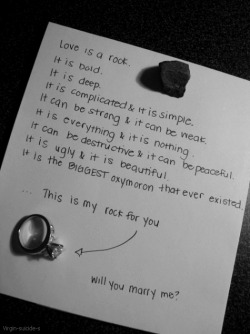 Love is a rock.
It is bold.
It is deep.
It is complicated & it is simple.
It can be strong & it can be weak.
It is everything & it is nothing.
It can be destructive & it can be peaceful.
It is ugly & it is beautiful.
It is the BIGGEST oxymoron that ever existed
... This is my rock for you
will you marry me?
Virgin-suicide-s